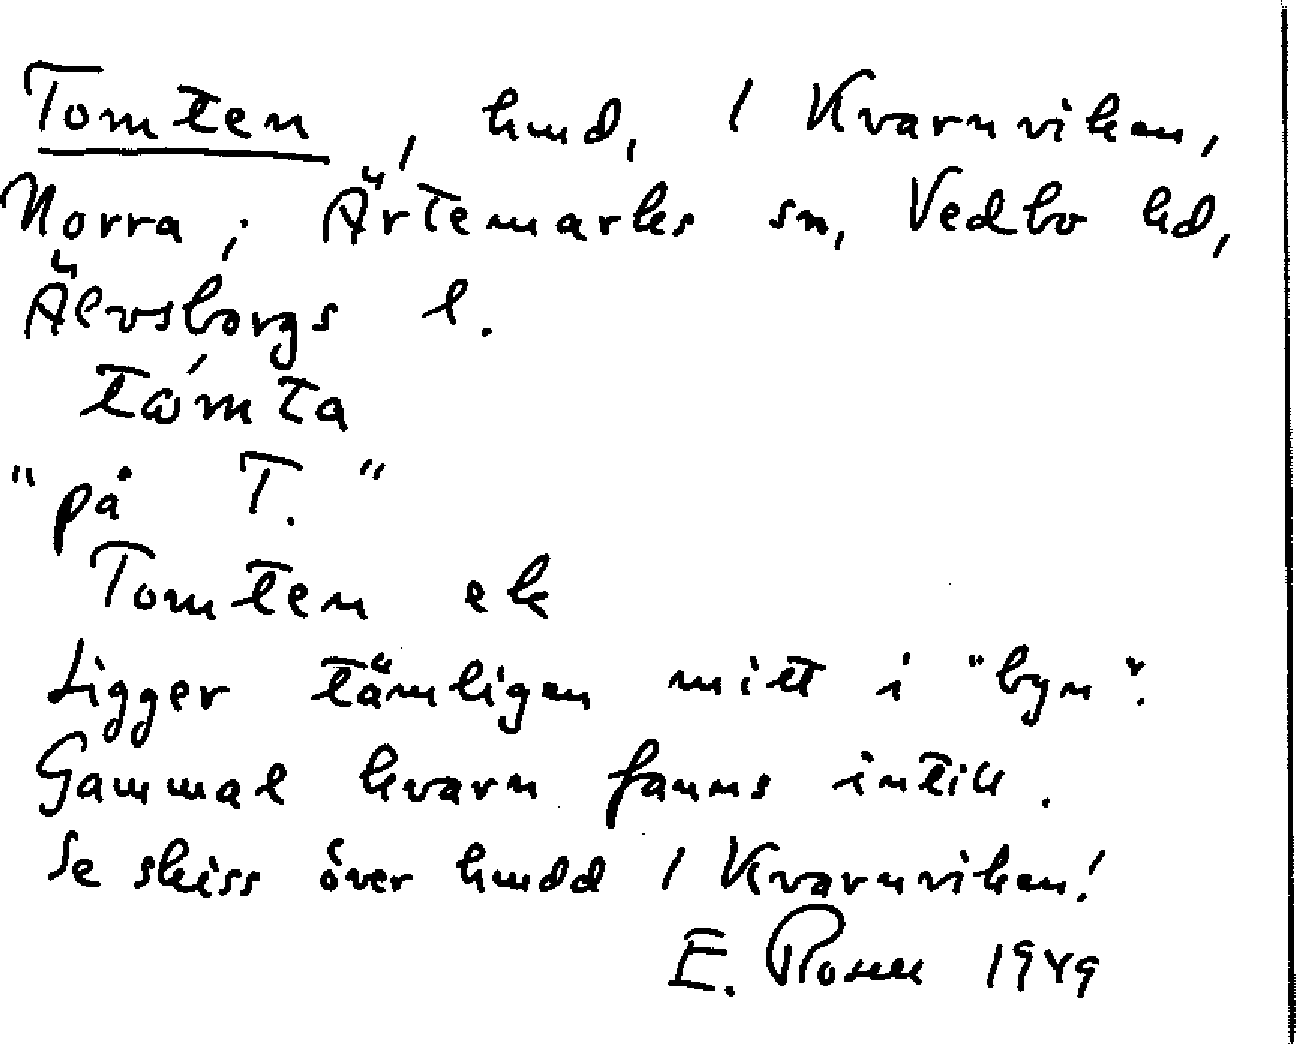 Tomten, hmd, 1 Kvarnviken,
Norra; Ärtemarks sn, Vedbo hd,
Älvsborgs l.
tómta
"på T."
Tomten ek
Ligger tämligen mitt i "byn".
Gammal kvarn fanns intill.
Se skiss över hmdd 1 Kvarnviken!
E. Rosell 1949